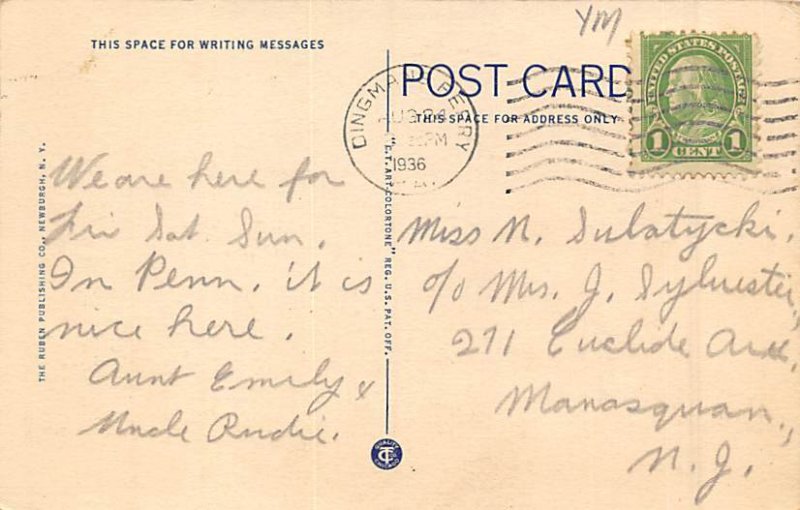 YM
THIS SPACE FOR WRITING MESSAGES
POST CARD
THIS SPACE FOR ADDRESS ONLY
DINGMANS FERRY
AUG 24
PM
1936
UNITED STATES POSTAGE
1 CENT 1
We are here for
Fri Sat Sun.
In Penn. it is
nice here.
Aunt Emily &
Uncle Rudie.
Miss N. Sulatycki.
c/o Mrs. J. Sylvester,
271 Euclide Ave.,
Manasquan.,
N. J.
THE RUBEN PUBLISHING CO., NEWBURGH, N. Y.
"C.T. ART-COLORTONE" REG. U.S. PAT. OFF.
QUALITY
CT
CHICAGO